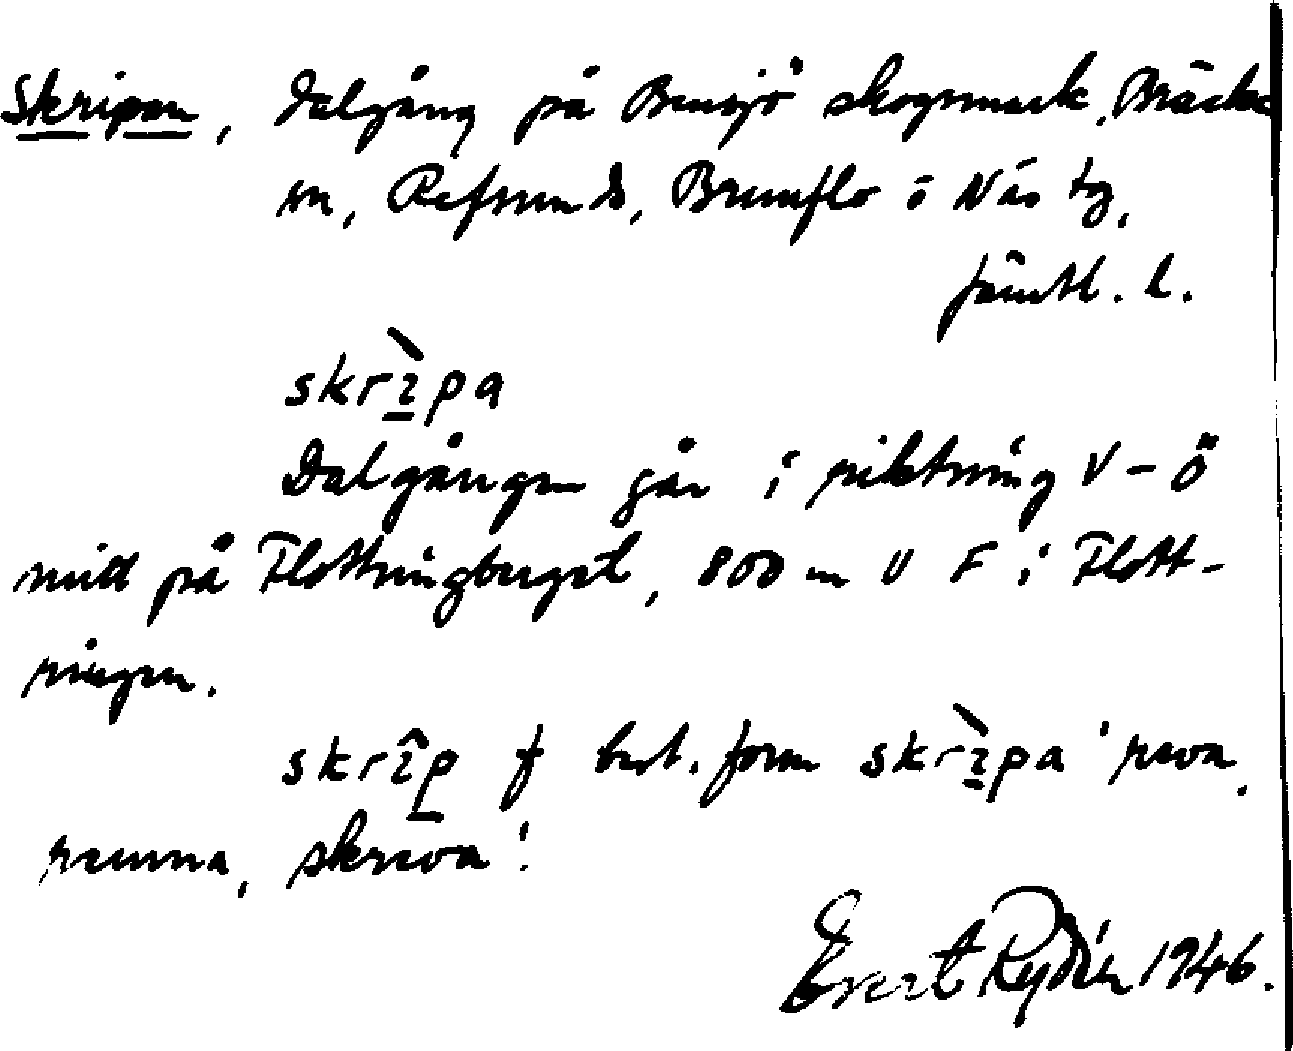 Skripan, Dalgång på Bensjö skogsmark, Bräcke
sn, Refsunds, Brunflo o Näs tg,
Jämtl. l.
skrìpa
Dalgången går i riktning V - Ö
mitt på Flottringberget, 800 m V F i Flott-
ringen.
skrîp f best. form skrìpa 'reva,
remna, skreva'.
Evert Rydén 1946.